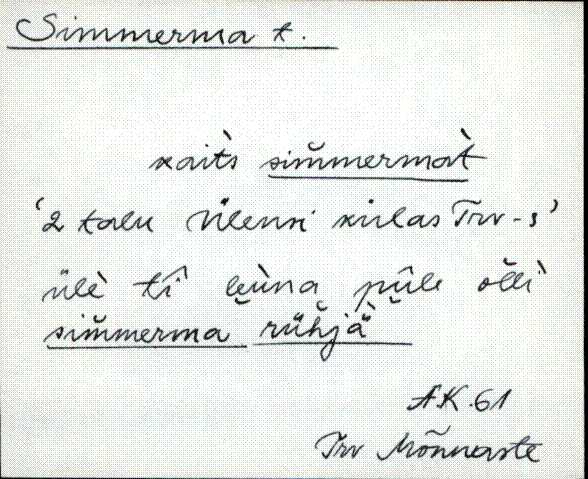 Simmerma t.
kait̀s sim̆mermat̀
'2 talu Ülensi külas Trv-s'
ülè tî leùna pûle ol̆lì
sim̆merma rüh̆jä̀
AK.61
Trv Mõnnaste